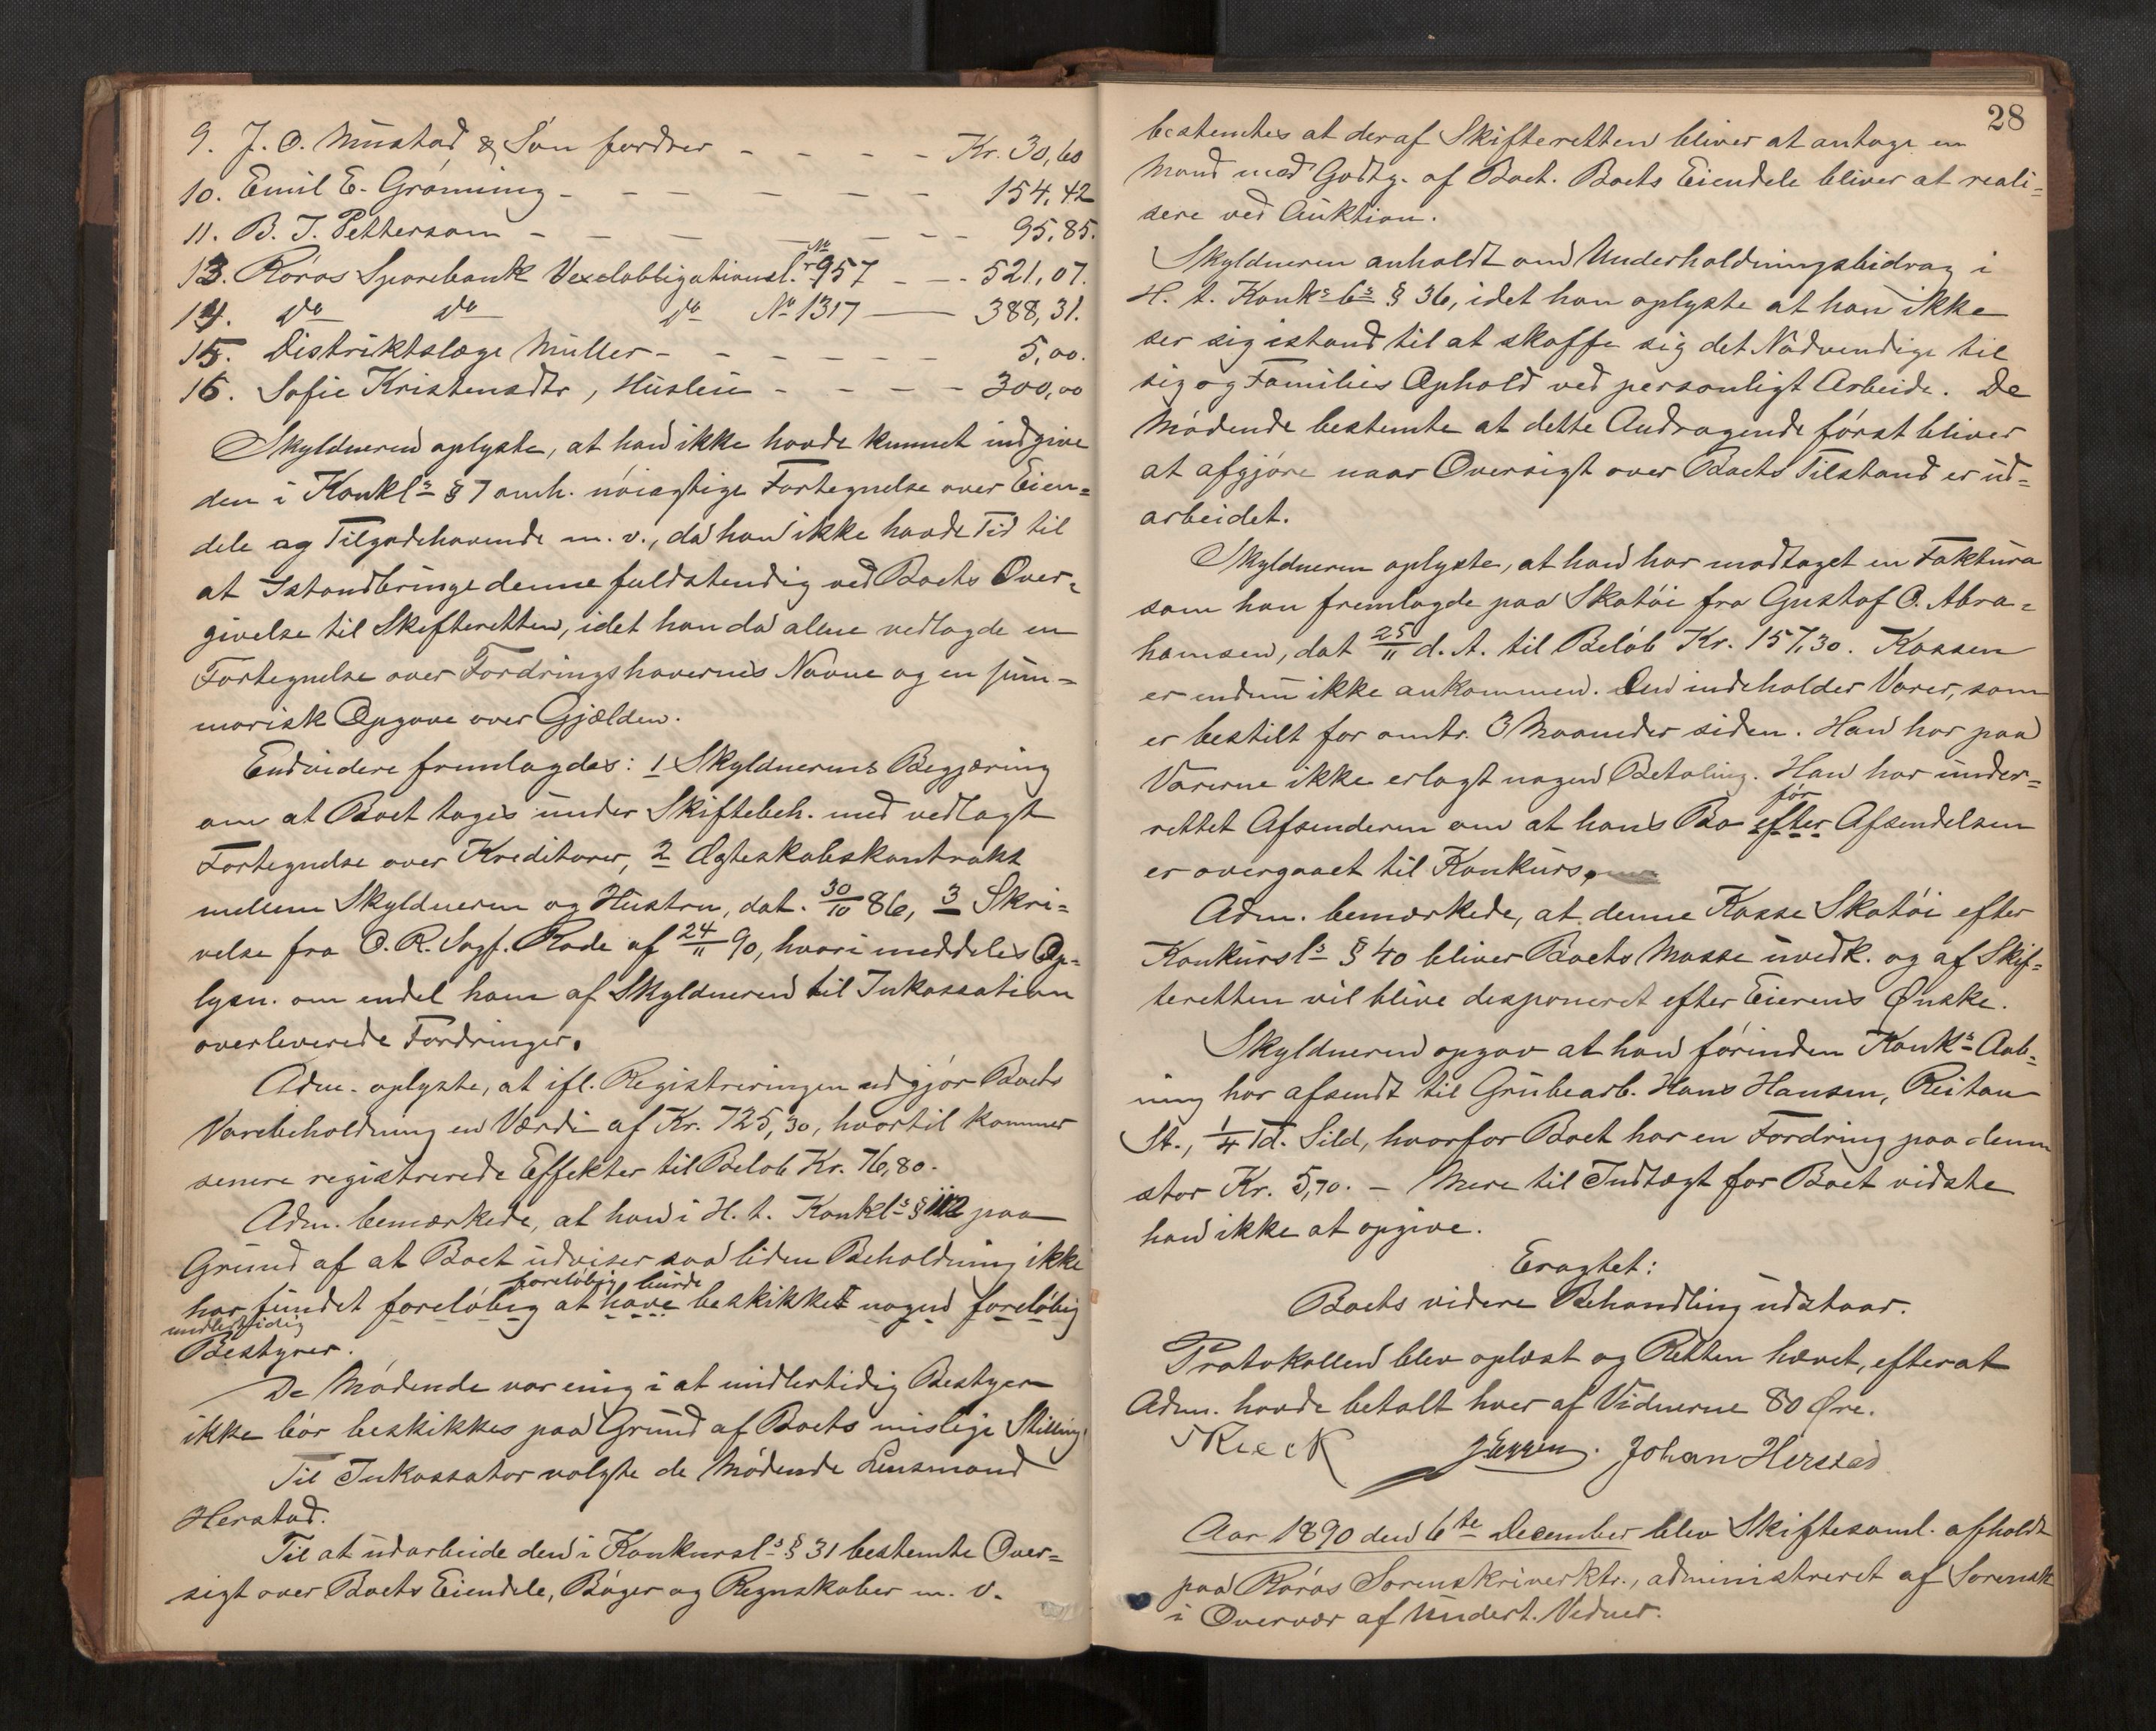 9. J. O. Mustad & Søn fordrer - - - - Kr. 30,60
10. Emil E. Grønning - - - - - - 154,42
11. B. T. Pettersom - - - - - - - 95,85.
13. Røros Sparebank Vexelobligationsl. No 957 - - 521,07.
14. do do do No 1317 - 388,31.
15. Distriktslæge Müller - - - - - - 5,00.
16. Sofie Kristensdtr, Husleie - - - - 300,00
Skyldueren oplyste, at han ikke havde kunnet indgive
den i Konkl.s § 7 omh. nøiagtige Fortegnelse over Eien=
dele og Tilgodehavende m. v., da han ikke havde Tid til
at Istandbringe denne fuldstendig ved Boets Over=
givelse til Skifteretten, idet han da alene vedlagde en
Fortegnelse over Fordringshavernes Navne og en sum=
marisk Opgave over Gjælden.
Endvidere fremlagdes: 1 Skyldnerens Begjæring
om at Boet toges under Skiftebeh. med vedlagt
Fortegnelse over Kreditorer, 2 Ægteskabskontrakt
mellem Skyldneren og Hustru, dat. 30/10 86, 3 Skri=
velse fra O. R. Sagf. Rode af 24/11 90, hvori meddeles Op=
lysn. om endel ham af Skyldneren til Inkassation
overleverede Fordringer.
Adm. oplyste, at ifl. Registreringen udgjør Boets
Varebeholdning en Værdi af Kr. 725,30, hvortil kommer
senere registrerede Effekter til Beløb Kr. 76,80.
Adm. bemærkede, at han i H. t. Konkl.s § paa
Grund af at Boet udviser saa liden Beholdning ikke
foreløbig burde
har fundet foreløbig at have beskikket nogen foreløbig
midlertidig
Bestyrer.
De Mødende var enig i at midlertidig Bestyrer
ikke bør beskikkes paa Grund af Boets mislige Stilling.
Til Inkassator valgte de Mødende Lensmand
Herstad.
Til at udarbeide den i Konkursl.s § 31 bestemte Over=
sigt over Boets Eiendele, Bøger og Regnskaber m. v.
28
bestemtes at der af Skifteretten bliver at antage en
Mand mod Godtg. af Boet. Boets Eiendele bliver at reali=
sere ved Auktion.
Skyldneren anholdt om Underholdningsbidrag i
H. t. Konks l.s § 36, idet han oplyste at han ikke
ser sig istand til at skaffe sig det Nødvendige til
sig og Families Ophold ved personligt Arbeide. De
Mødende bestemte at dette Andragende først bliver
at afgjøre naar Oversigt over Boets Tilstand er ud=
arbeidet.
Skyldneren oplyste, at han har modtaget en Faktura
som han fremlagde paa Skotøi fra Gustaf O. Abra=
hamsen, dat 25/11 d. A. til Beløb Kr. 157,30. Kassen
er endnu ikke ankommen. Den indeholder Varer, som
er bestilt for omtr. 3 Maaneder siden. Han har paa
Varerne ikke erlagt nogen Betaling. Han har under=
før
rettet Afsenderen om at hans Bo efter Afsendelsen
er overgaaet til Konkurs.
Adm. bemærkede, at denne Kasse Skotøi efter
Konkursl.s § 40 bliver Boets Masse uvedk. og af Skif=
teretten vil blive desponeret efter Eierens Ønske.
Skyldneren opgav at han førinden Konk.s Aab=
ning har afsendt til Grubearb. Hans Hansen, Reitan
St., 1/4 Td. Sild, hvorfor Boet har en Fordring paa denne
stor Kr. 5,70. - Mere til Indtægt for Boet vidste
han ikke at opgive.
Eragtet:
Boets videre Behandling udstaar.
Protokollen blev oplæst og Retten hævet, efterat
Adm. havde betalt hver af Vidnerne 80 Øre.
Johan Herstad
Aar 1890 den 6te December blev Skiftesaml. afholdt
paa Røros Sorenskriverktr., administreret af Sorensk
i Overvær af Undert. Vidner.